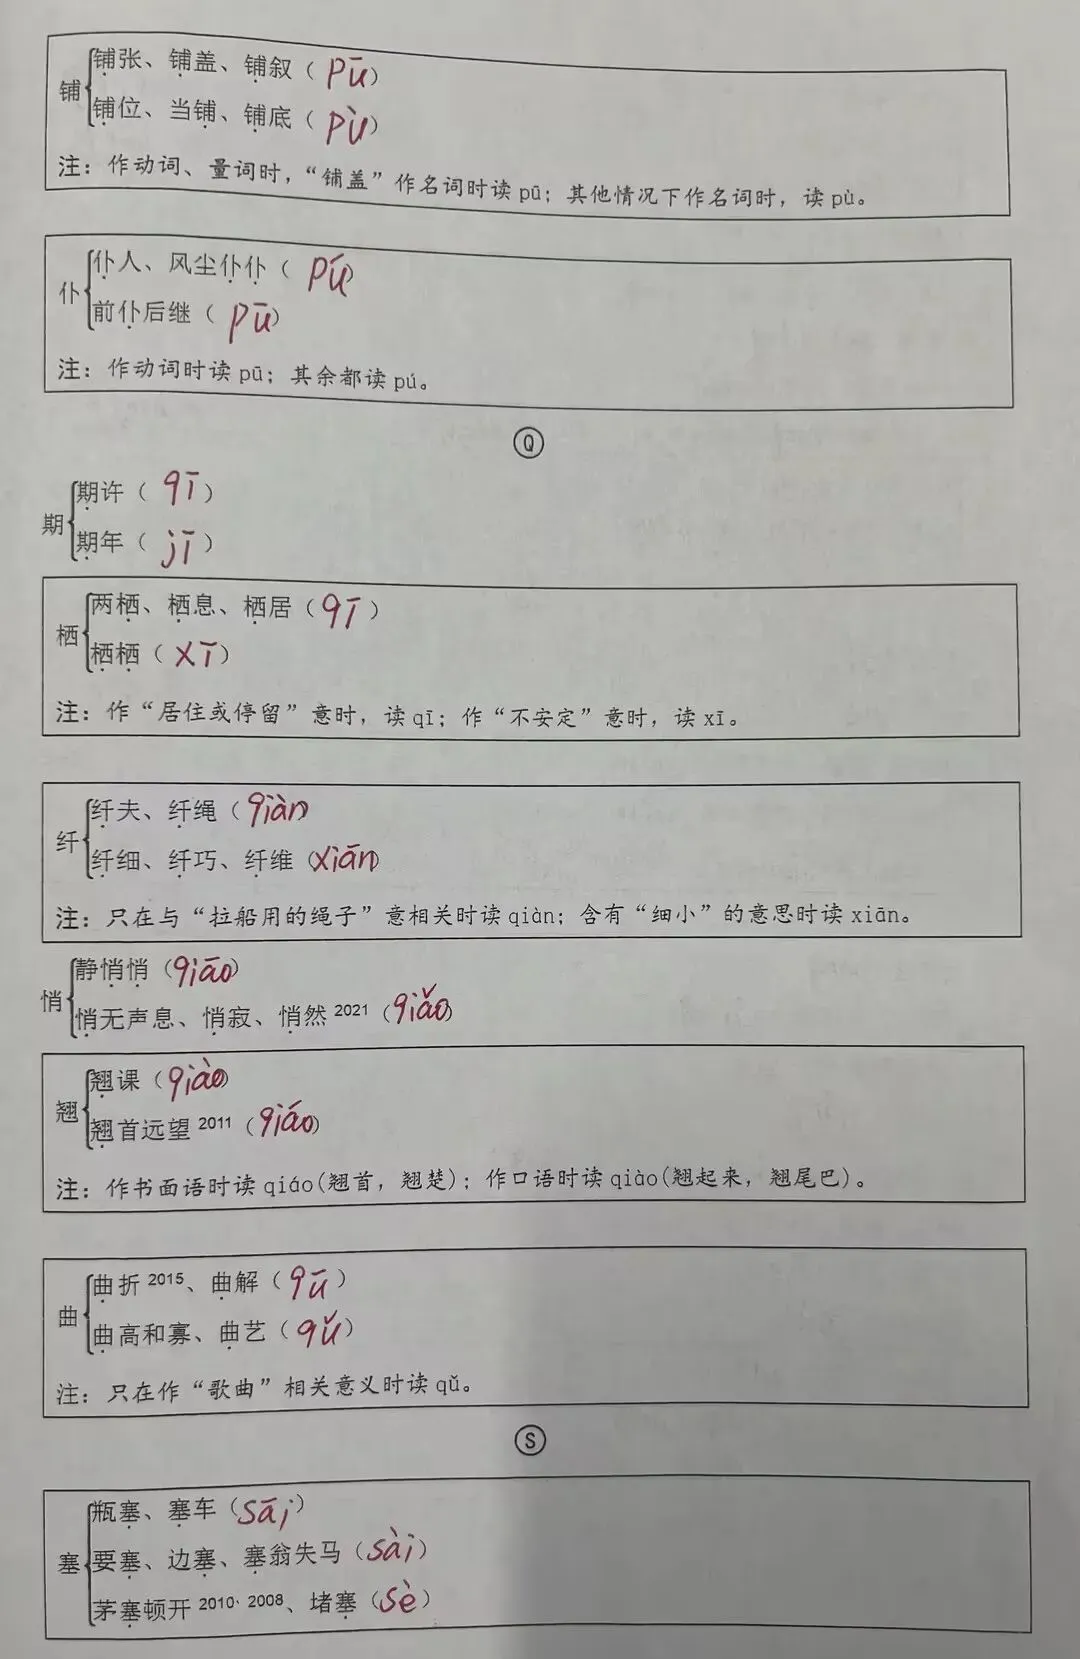 铺
铺张、铺盖、铺叙（pū）
铺位、当铺、铺底（pù）
注：作动词、量词时，“铺盖”作名词时读 pū；其他情况下作名词时，读 pù。
仆
仆人、风尘仆仆（pú）
前仆后继（pū）
注：作动词时读 pū；其余都读 pú。
Q
期
期许（qī）
期年（jī）
栖
两栖、栖息、栖居（qī）
栖栖（xī）
注：作“居住或停留”意时，读 qī；作“不安定”意时，读 xī。
纤
纤夫、纤绳（qiàn）
纤细、纤巧、纤维（xiān）
注：只在与“拉船用的绳子”意相关时读 qiàn；含有“细小”的意思时读 xiān。
悄
静悄悄（qiāo）
悄无声息、悄寂、悄然 2021（qiǎo）
翘
翘课（qiào）
翘首远望 2011（qiáo）
注：作书面语时读 qiáo(翘首，翘楚)；作口语时读 qiào(翘起来，翘尾巴)。
曲
曲折 2015、曲解（qū）
曲高和寡、曲艺（qǔ）
注：只在作“歌曲”相关意义时读 qǔ。
S
塞
瓶塞、塞车（sāi）
要塞、边塞、塞翁失马（sài）
茅塞顿开 2010、2008、堵塞（sè）